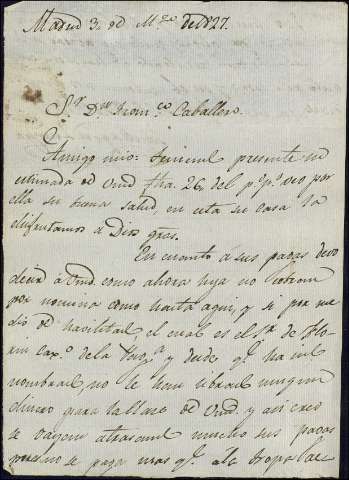 Madrid 3. de Mzo de 1827.
Sr. Dn Franco Caballero.
Amigo mio: tuve presente su
estimada de Vmd fha. 26. del pº pº veo por
ella su buena salud, en esta su casa la
disfrutamos a Dios grs.
En cuanto á sus pagas devo
decir á Vmd. como ahora hya no cobran
por nomina como hasta aqui, y si por me
dio de havilitado el cual es el Sr. de
de la y desde q.e ha sido
nombrado, no le han librado ningun
dinero para la clase de Vmd. y asi creo
se vayan atrasando mucho sus pagas
se paga mas q.e á la tropa de